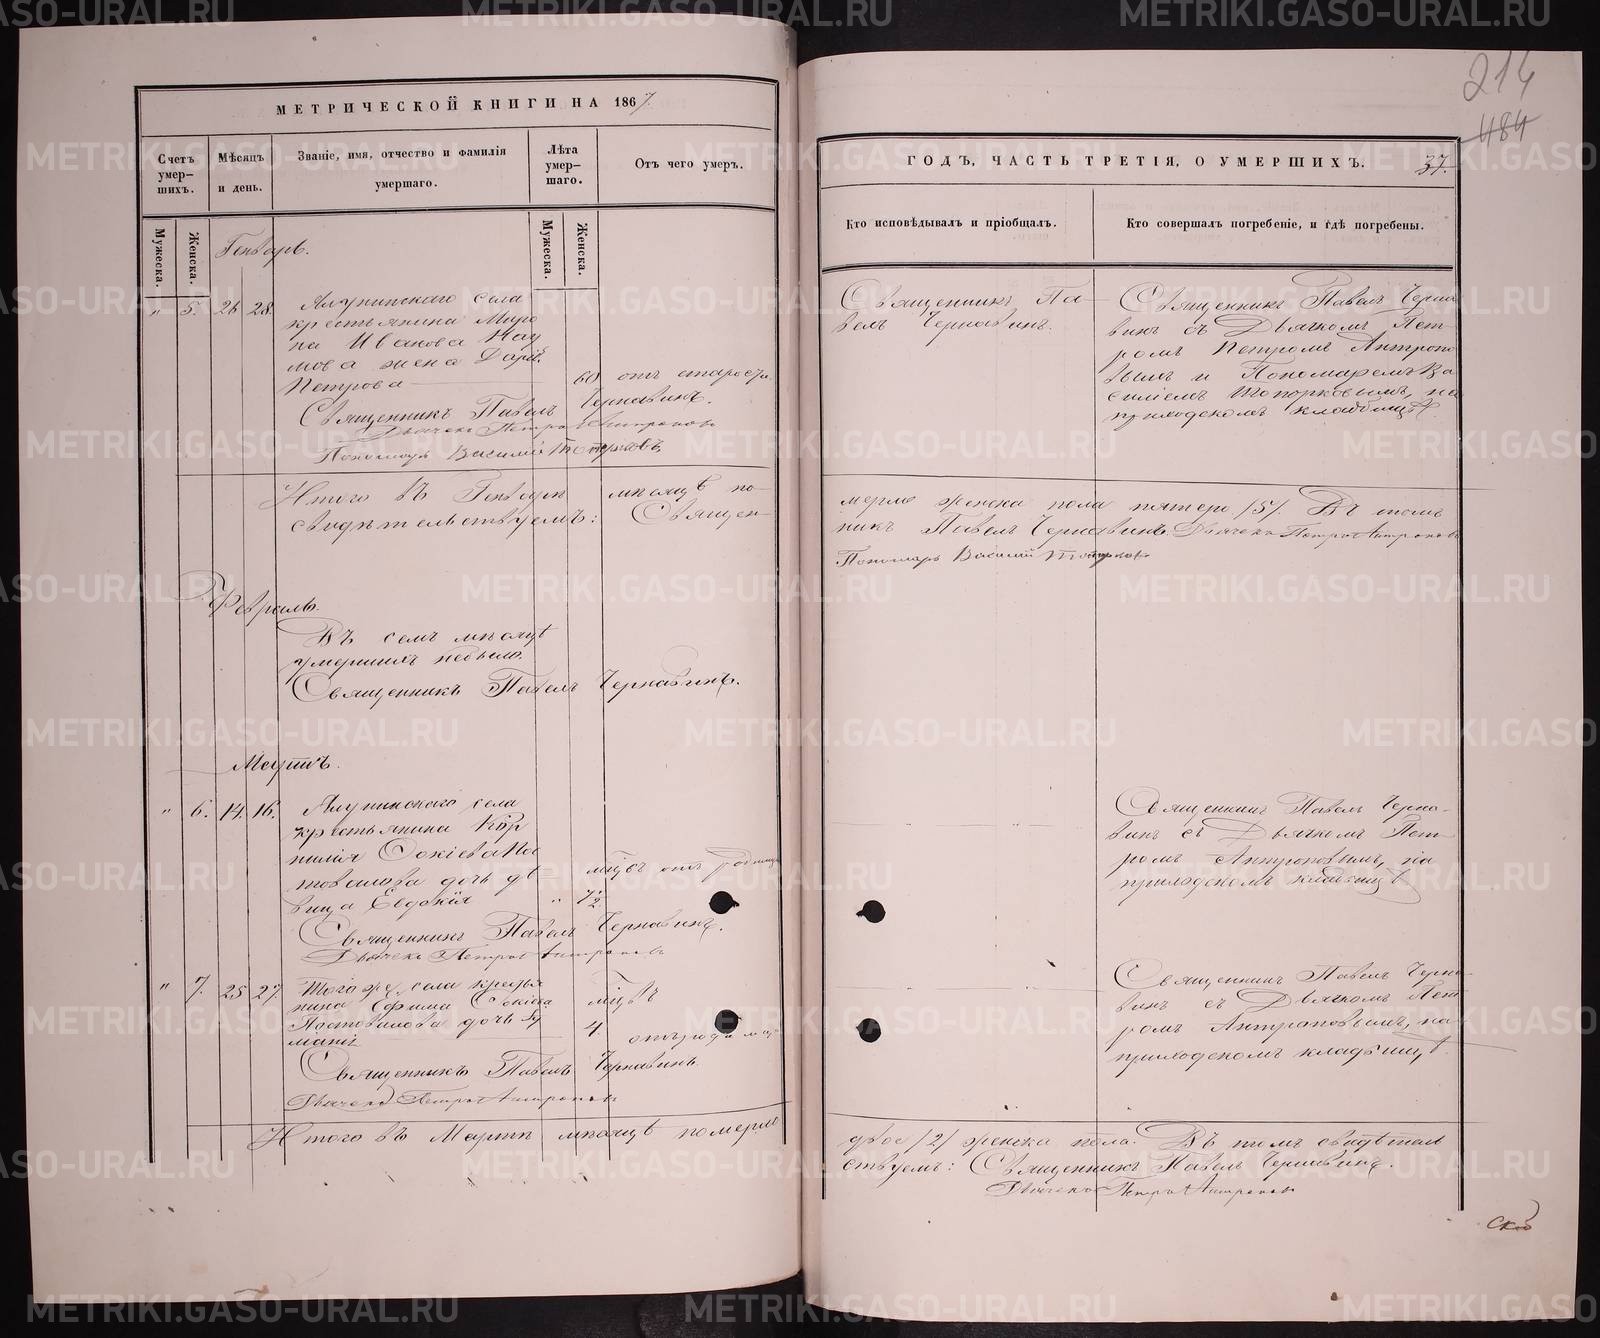 МЕТРИЧЕСКОЙ КНИГИ НА 1867
Счетъ умер-шихъ.
Мѣсяцъ и день.
Званіе, имя, отчество и фамилія умершаго.
Лѣта умер-шаго.
Отъ чего умеръ.
Мужеска.
Женска.
Мужеска.
Женска.
Генварь.
" 5. 26 28.
Ялунинскаго села
крестьянина Миро
на Иванова Нау
мова жена Дарія
Петрова
60 отъ старости.
Священникъ Павелъ Чернавинъ.
Дьячекъ Петръ Антроповъ
Пономарь Василій Топорковъ
Итого въ Генварѣ мѣсяцѣ по-
свидѣтельствуемъ: Священ-
Февраль.
Въ семъ мѣсяцѣ
умершихъ небыло.
Священникъ Павелъ Чернавинъ.
Мартъ.
" 6. 14. 16.
Ялунинскаго села
крестьянина Кор
нилія
товалова дочь дѣ
вица Евдокія
мѣцъ отъ родимца
" 7½
Священникъ Павелъ Чернавинъ.
Дьячекъ Петръ Антроповъ
" 7. 25 27.
Тогоже села крестья
нина Ефима
Постовалова дочь
мѣцъ
4.
Священникъ Павелъ Чернавинъ
Дьячекъ Петръ Антроповъ
Итого въ Мартѣ мѣсяцѣ померло
214
484
ГОДЪ, ЧАСТЬ ТРЕТІЯ, О УМЕРШИХЪ. 37.
Кто исповѣдывалъ и пріобщалъ.
Кто совершалъ погребеніе, и гдѣ погребены.
Священникъ Па-
велъ Чернавинъ.
Священникъ Павелъ Черна
винъ съ Дьячкомъ Пет-
ромъ Петромъ Антропо
вымъ и Пономаремъ Ва
силіемъ Топорковымъ, на
приходскомъ кладбищѣ.
мерло женска пола пятеро /5/. Въ томъ
никъ Павелъ Чернавинъ. Дьячекъ Петръ Антроповъ
Пономарь Василій Топорковъ
Священникъ Павелъ Черна-
винъ съ Дьячкомъ Пет-
ромъ Антроповымъ, на
приходскомъ кладбищѣ
Священникъ Павелъ Черна-
винъ съ Дьячкомъ Пет
ромъ Антроповымъ, на
приходскомъ кладбищѣ.
двое /2/ женска пола. Въ томъ свидѣтель
ствуемъ: Священникъ Павелъ Чернавинъ.
Дьячекъ Петръ Антроповъ
METRIKI.GASO-URAL.RU